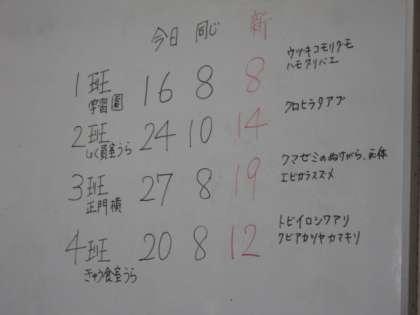 今日 同じ 新
1班 16 8 8 ウヅキコモリグモ
学習園 ハモグリバエ
2班 24 10 14 クロヒラタアブ
しょく員室うら
3班 27 8 19 クマゼミのぬけがら、死体
正門横 エビガラスズメ
4班 20 8 12 トビイロシワアリ
きゅう食室うら クビアカツヤカマキリ